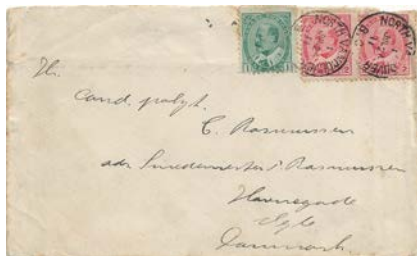 NORTH VANCOUVER B.C.
1
2
2
Hr.
Cand. polyt.
C. Rasmussen
adr. Smedemester Rasmussen
Havnegade
Danmark.